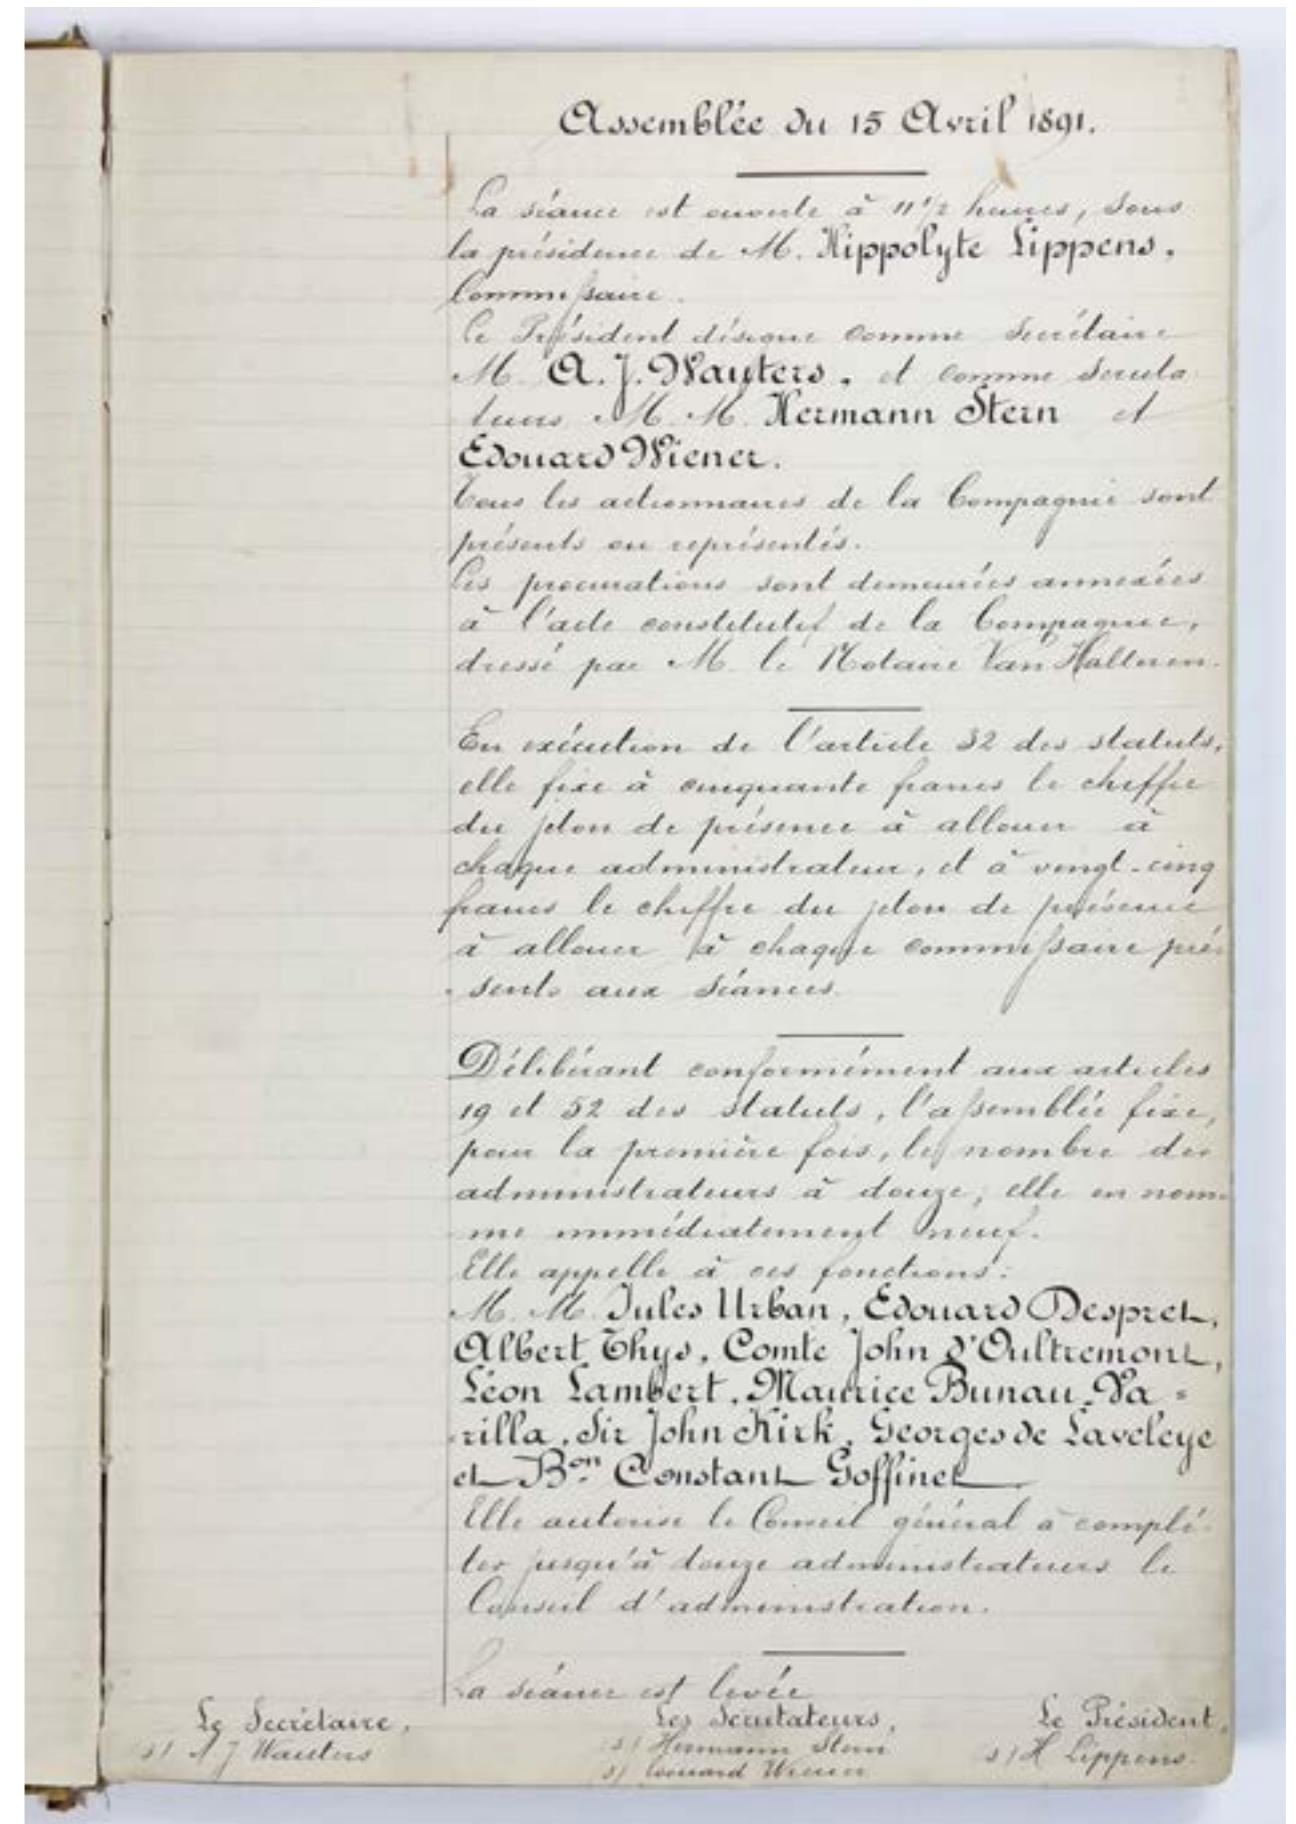 Assemblée du 15 Avril 1891.
La séance est ouverte à 11 1/2 heures, sous
la présidence de M. Hippolyte Lippens,
Commissaire.
Le Président désigne comme Secrétaire
M. A. J. Wauters, et comme Scruta
teurs M. M. Hermann Stern et
Edouard Wiener.
Tous les actionnaires de la Compagnie sont
présents ou représentés.
Les procurations sont demeurées annexées
à l'acte constitutif de la Compagnie,
dressé par M. le Notaire Van Halteren.
En exécution de l'article 32 des statuts,
elle fixe à cinquante francs le chiffre
du jeton de présence à allouer à
chaque administrateur, et à vingt-cinq
francs le chiffre du jeton de présence
à allouer à chaque commissaire pré-
sents aux séances.
Délibérant conformément aux articles
19 et 52 des statuts, l'assemblée fixe,
pour la première fois, le nombre des
administrateurs à douze; elle en nom-
me immédiatement neuf.
Elle appelle à ces fonctions:
M. M. Jules Urban, Edouard Despret,
Albert Thys, Comte John d'Oultremont,
Léon Lambert, Maurice Bunau-Va=
rilla, Sir John Kirk, Georges de Laveleye
et Bon Constant Goffinet
Elle autorise le Conseil général à complé-
ter jusqu'à douze administrateurs le
Conseil d'administration.
La séance est levée
Le Secrétaire, Les Scrutateurs, Le Président,
s/ A J Wauters s/ Hermann Stern s/ H Lippens
s/ Edouard Wiener